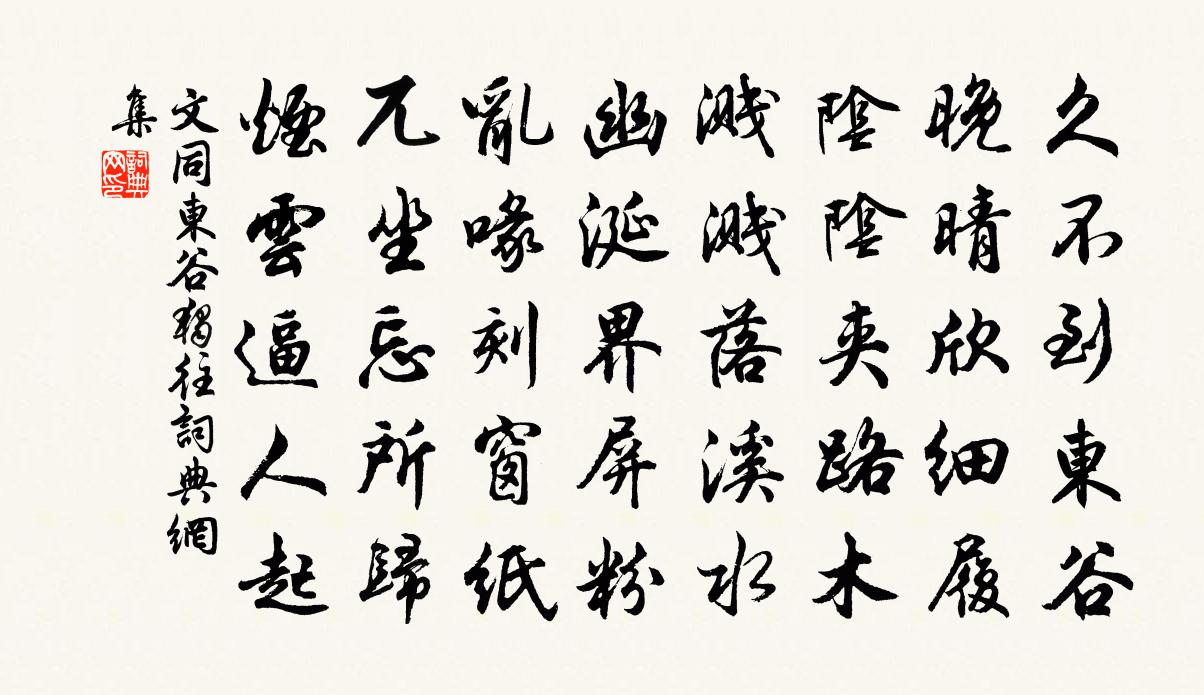 久不到東谷
晚晴欣細履
陰陰夾路木
濺濺落溪水
幽涎界屏粉
亂喙刻窗紙
兀坐忘所歸
煙雲逼人起
文同東谷獨往詞典網
集
詞典网印